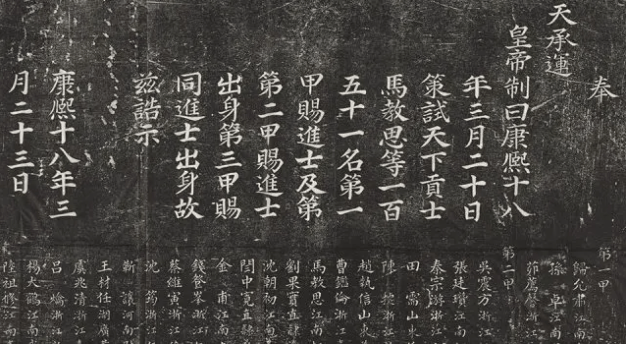 奉
天承運
皇帝制曰康熙十八
年三月二十日
策試天下貢士
馬教思等一百
五十一名第一
甲賜進士及第
第二甲賜進士
出身第三甲賜
同進士出身故
茲誥示
康熙十八年三
月二十三日
第一甲
歸允肅江南
孫卓江南
茆薦馨浙江
第二甲
吳震方浙江
張建江南
秦宗游浙江
田需山東
陳浙江
趙執信山東
曹鑑倫浙江
馬教思江南
劉果實直隸
沈朝初江南
閻中寬直隸
金甫江南
錢登峯浙江
蔡寅浙江
沈筠浙江
靳讓河南
王材任湖廣
虞兆清浙江
呂浙江
楊大鶴江南
陸祖修江南